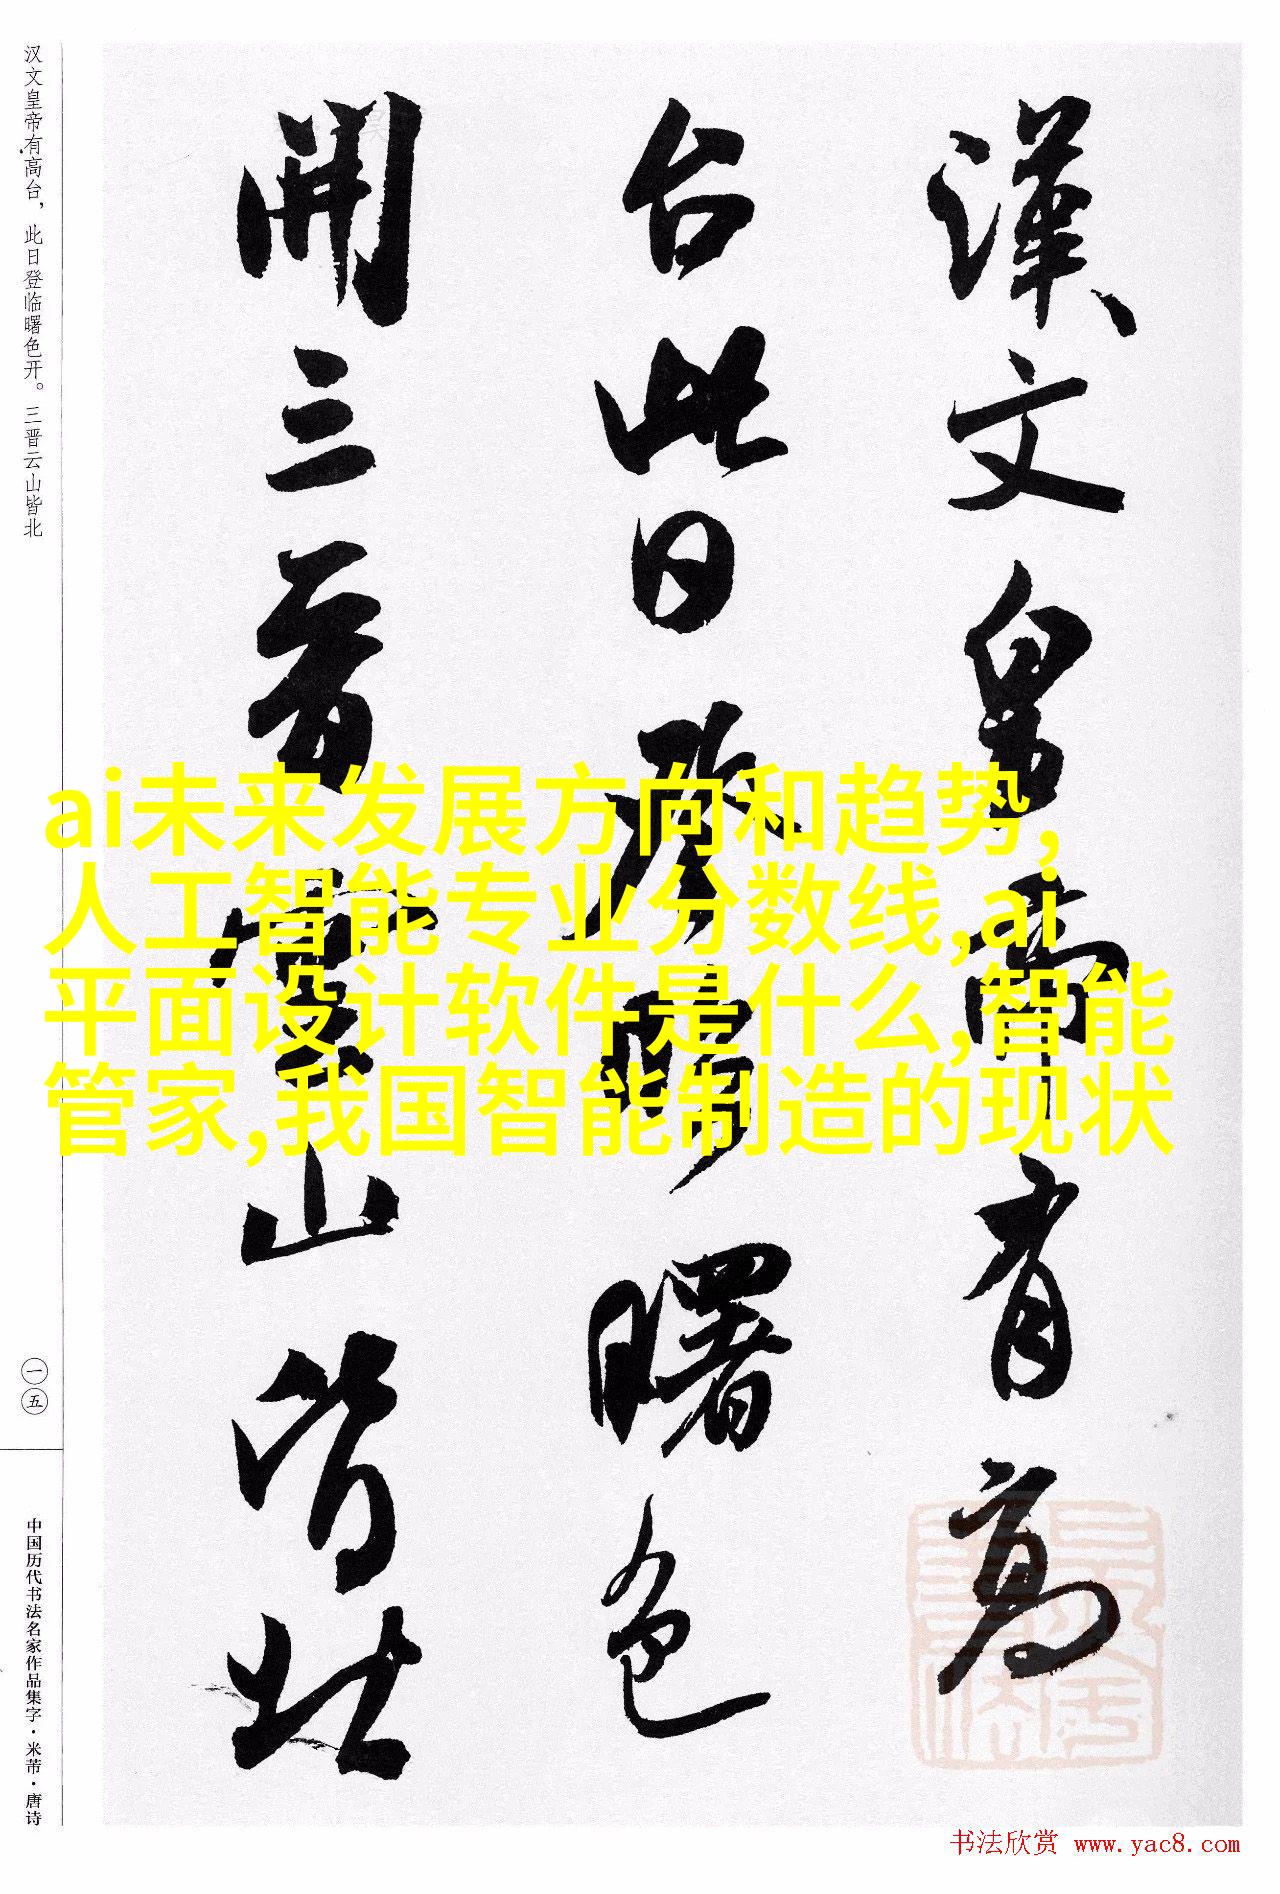 漢文皇帝有高
台此日登臨曙色
開三晉雲山皆北
汉文皇帝有高台，此日登临曙色开。三晋云山皆北
一五
中国历代书法名家作品集字·米芾·唐诗
ai未来发展方向和趋势,
人工智能专业分数线,ai
平面设计软件是什么,智能
管家,我国智能制造的现状
书法欣赏 www.yac8.com